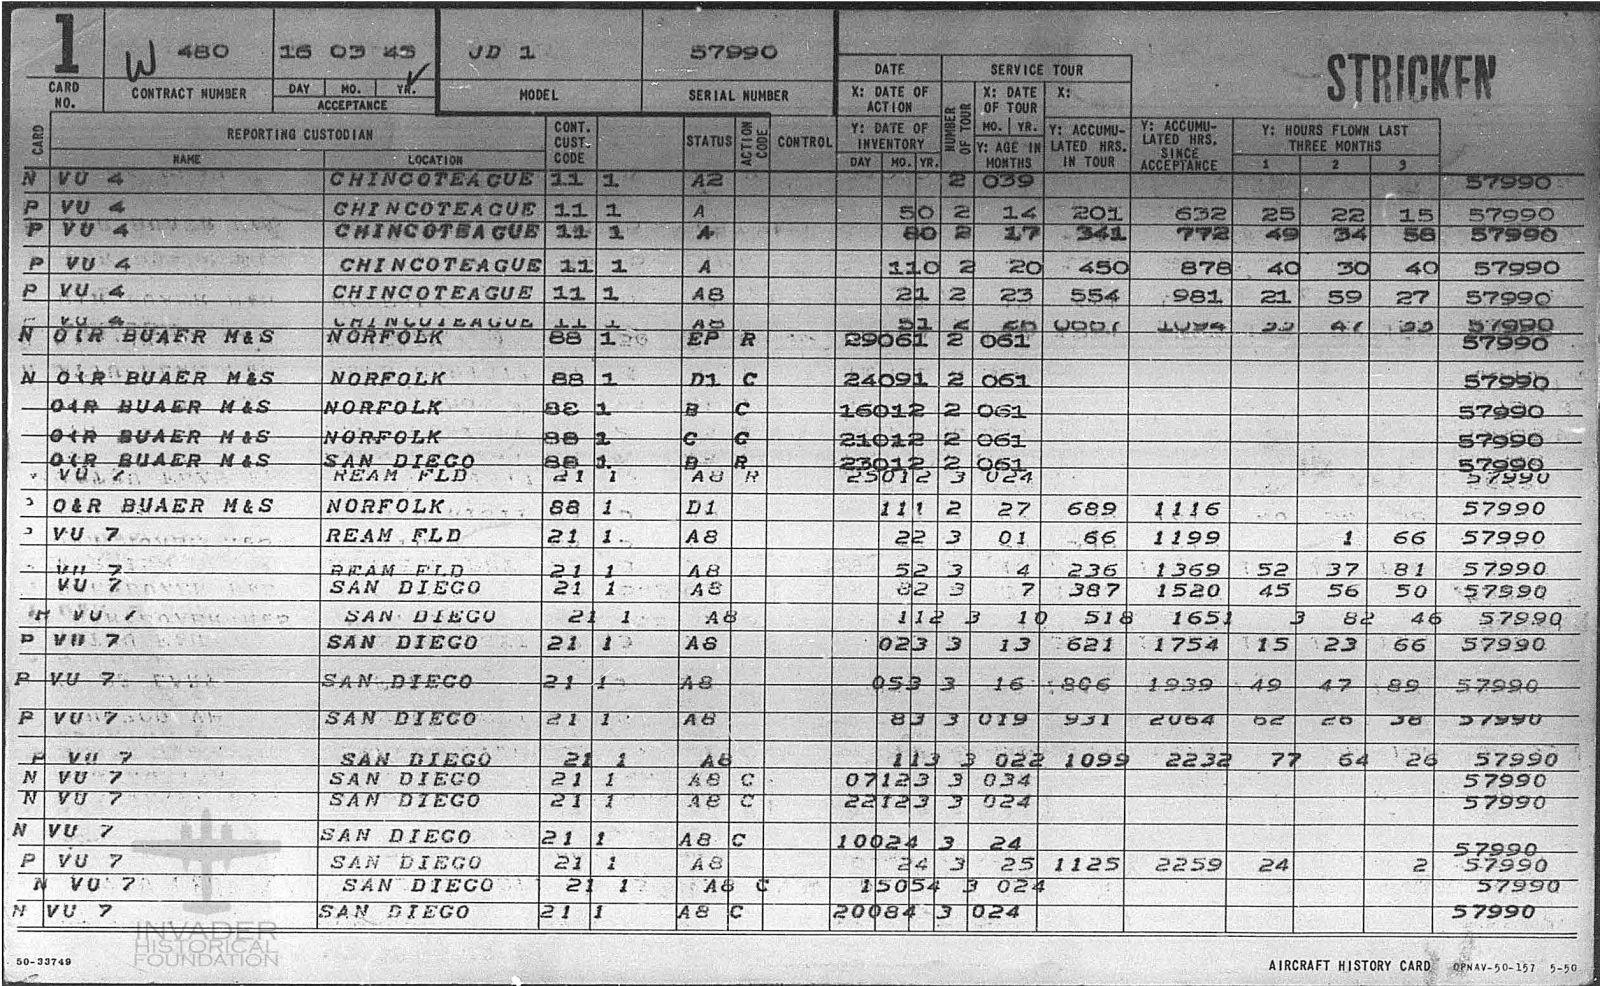 1 W 480 16 03 45 JD 1 57990
STRICKEN
CARD NO. CONTRACT NUMBER DAY MO. YR. ACCEPTANCE MODEL SERIAL NUMBER
DATE SERVICE TOUR
X: DATE OF ACTION NUMBER OF TOUR X: DATE OF TOUR X:
CARD REPORTING CUSTODIAN CONT. CUST. CODE STATUS ACTION CODE CONTROL Y: DATE OF INVENTORY MO. YR. Y: ACCUMULATED HRS. IN TOUR Y: ACCUMULATED HRS. SINCE ACCEPTANCE Y: HOURS FLOWN LAST THREE MONTHS
NAME LOCATION DAY MO. YR. Y: AGE IN MONTHS 1 2 3
N VU 4 CHINCOTEAGUE 11 1 A2 2 039 57990
P VU 4 CHINCOTEAGUE 11 1 A 50 2 14 201 632 25 22 15 57990
P VU 4 CHINCOTEAGUE 11 1 A 80 2 17 341 772 49 34 58 57990
P VU 4 CHINCOTEAGUE 11 1 A 110 2 20 450 878 40 30 40 57990
P VU 4 CHINCOTEAGUE 11 1 A8 21 2 23 554 981 21 59 27 57990
VU 4 CHINCOTEAGUE 11 1 57990
N O&R BUAER M&S NORFOLK 88 1 EP R 29061 2 061 57990
N O&R BUAER M&S NORFOLK 88 1 D1 C 24091 2 061 57990
O&R BUAER M&S NORFOLK 88 1 B C 16012 2 061 57990
O&R BUAER M&S NORFOLK 88 1 C C 21012 2 061 57990
O&R BUAER M&S SAN DIEGO 88 1 B R 23012 2 061 57990
VU 7 REAM FLD 21 1 A8 R 25012 3 024 57990
O&R BUAER M&S NORFOLK 88 1 D1 111 2 27 689 1116 57990
VU 7 REAM FLD 21 1 A8 22 3 01 66 1199 1 66 57990
VU 7 REAM FLD 21 1 A8 52 3 4 236 1369 52 37 81 57990
VU 7 SAN DIEGO 21 1 A8 82 3 7 387 1520 45 56 50 57990
VU 7 SAN DIEGO 21 1 A8 112 3 10 518 1651 3 82 46 57990
P VU 7 SAN DIEGO 21 1 A8 023 3 13 621 1754 15 23 66 57990
P VU 7 SAN DIEGO 21 1 A8 053 3 16 806 1939 49 47 89 57990
P VU 7 SAN DIEGO 21 1 A8 83 3 019 931 2064 62 26 38 57990
P VU 7 SAN DIEGO 21 1 A8 113 3 022 1099 2232 77 64 26 57990
N VU 7 SAN DIEGO 21 1 A8 C 07123 3 034 57990
N VU 7 SAN DIEGO 21 1 A8 C 22123 3 024 57990
N VU 7 SAN DIEGO 21 1 A8 C 10024 3 24 57990
P VU 7 SAN DIEGO 21 1 A8 24 3 25 1125 2259 24 2 57990
N VU 7 SAN DIEGO 21 1 A8 C 15054 3 024 57990
N VU 7 SAN DIEGO 21 1 A8 C 20084 3 024 57990
INVADER
HISTORICAL
FOUNDATION
50-33749 AIRCRAFT HISTORY CARD OPNAV-50-157 5-50